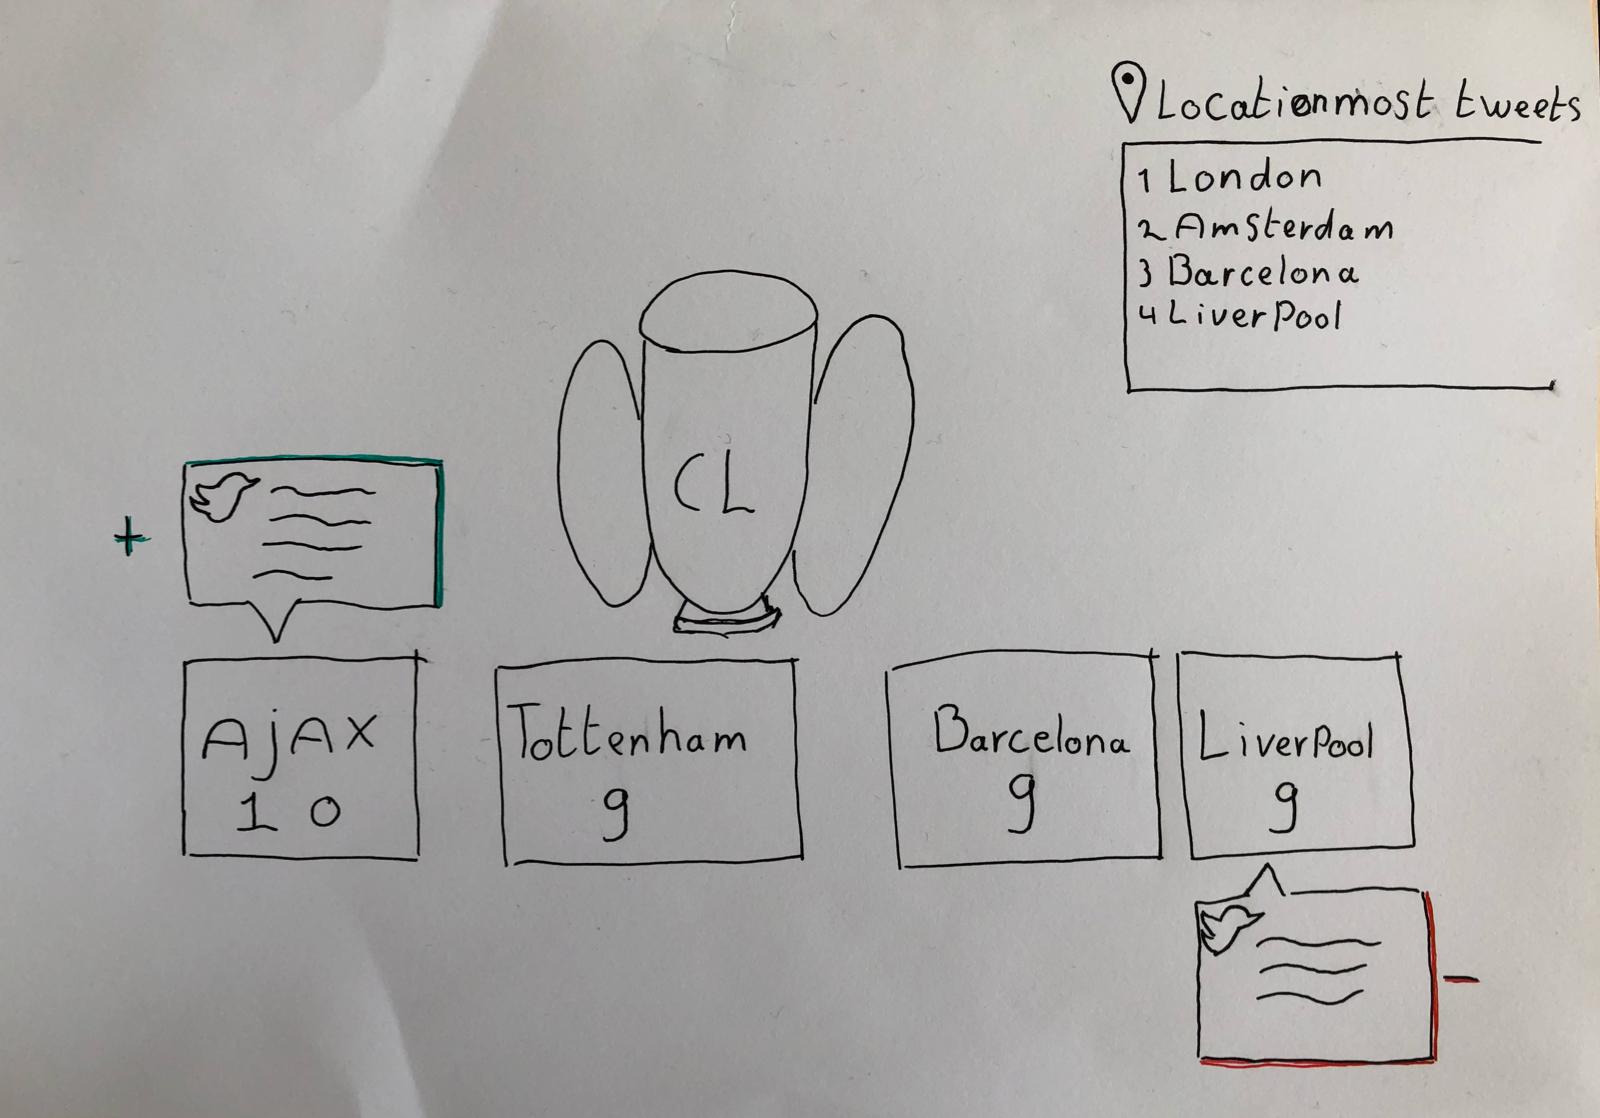 Locationmost tweets
1 London
2 Amsterdam
3 Barcelona
4 LiverPool
CL
+
AjAX
10
Tottenham
9
Barcelona
9
LiverPool
9
-